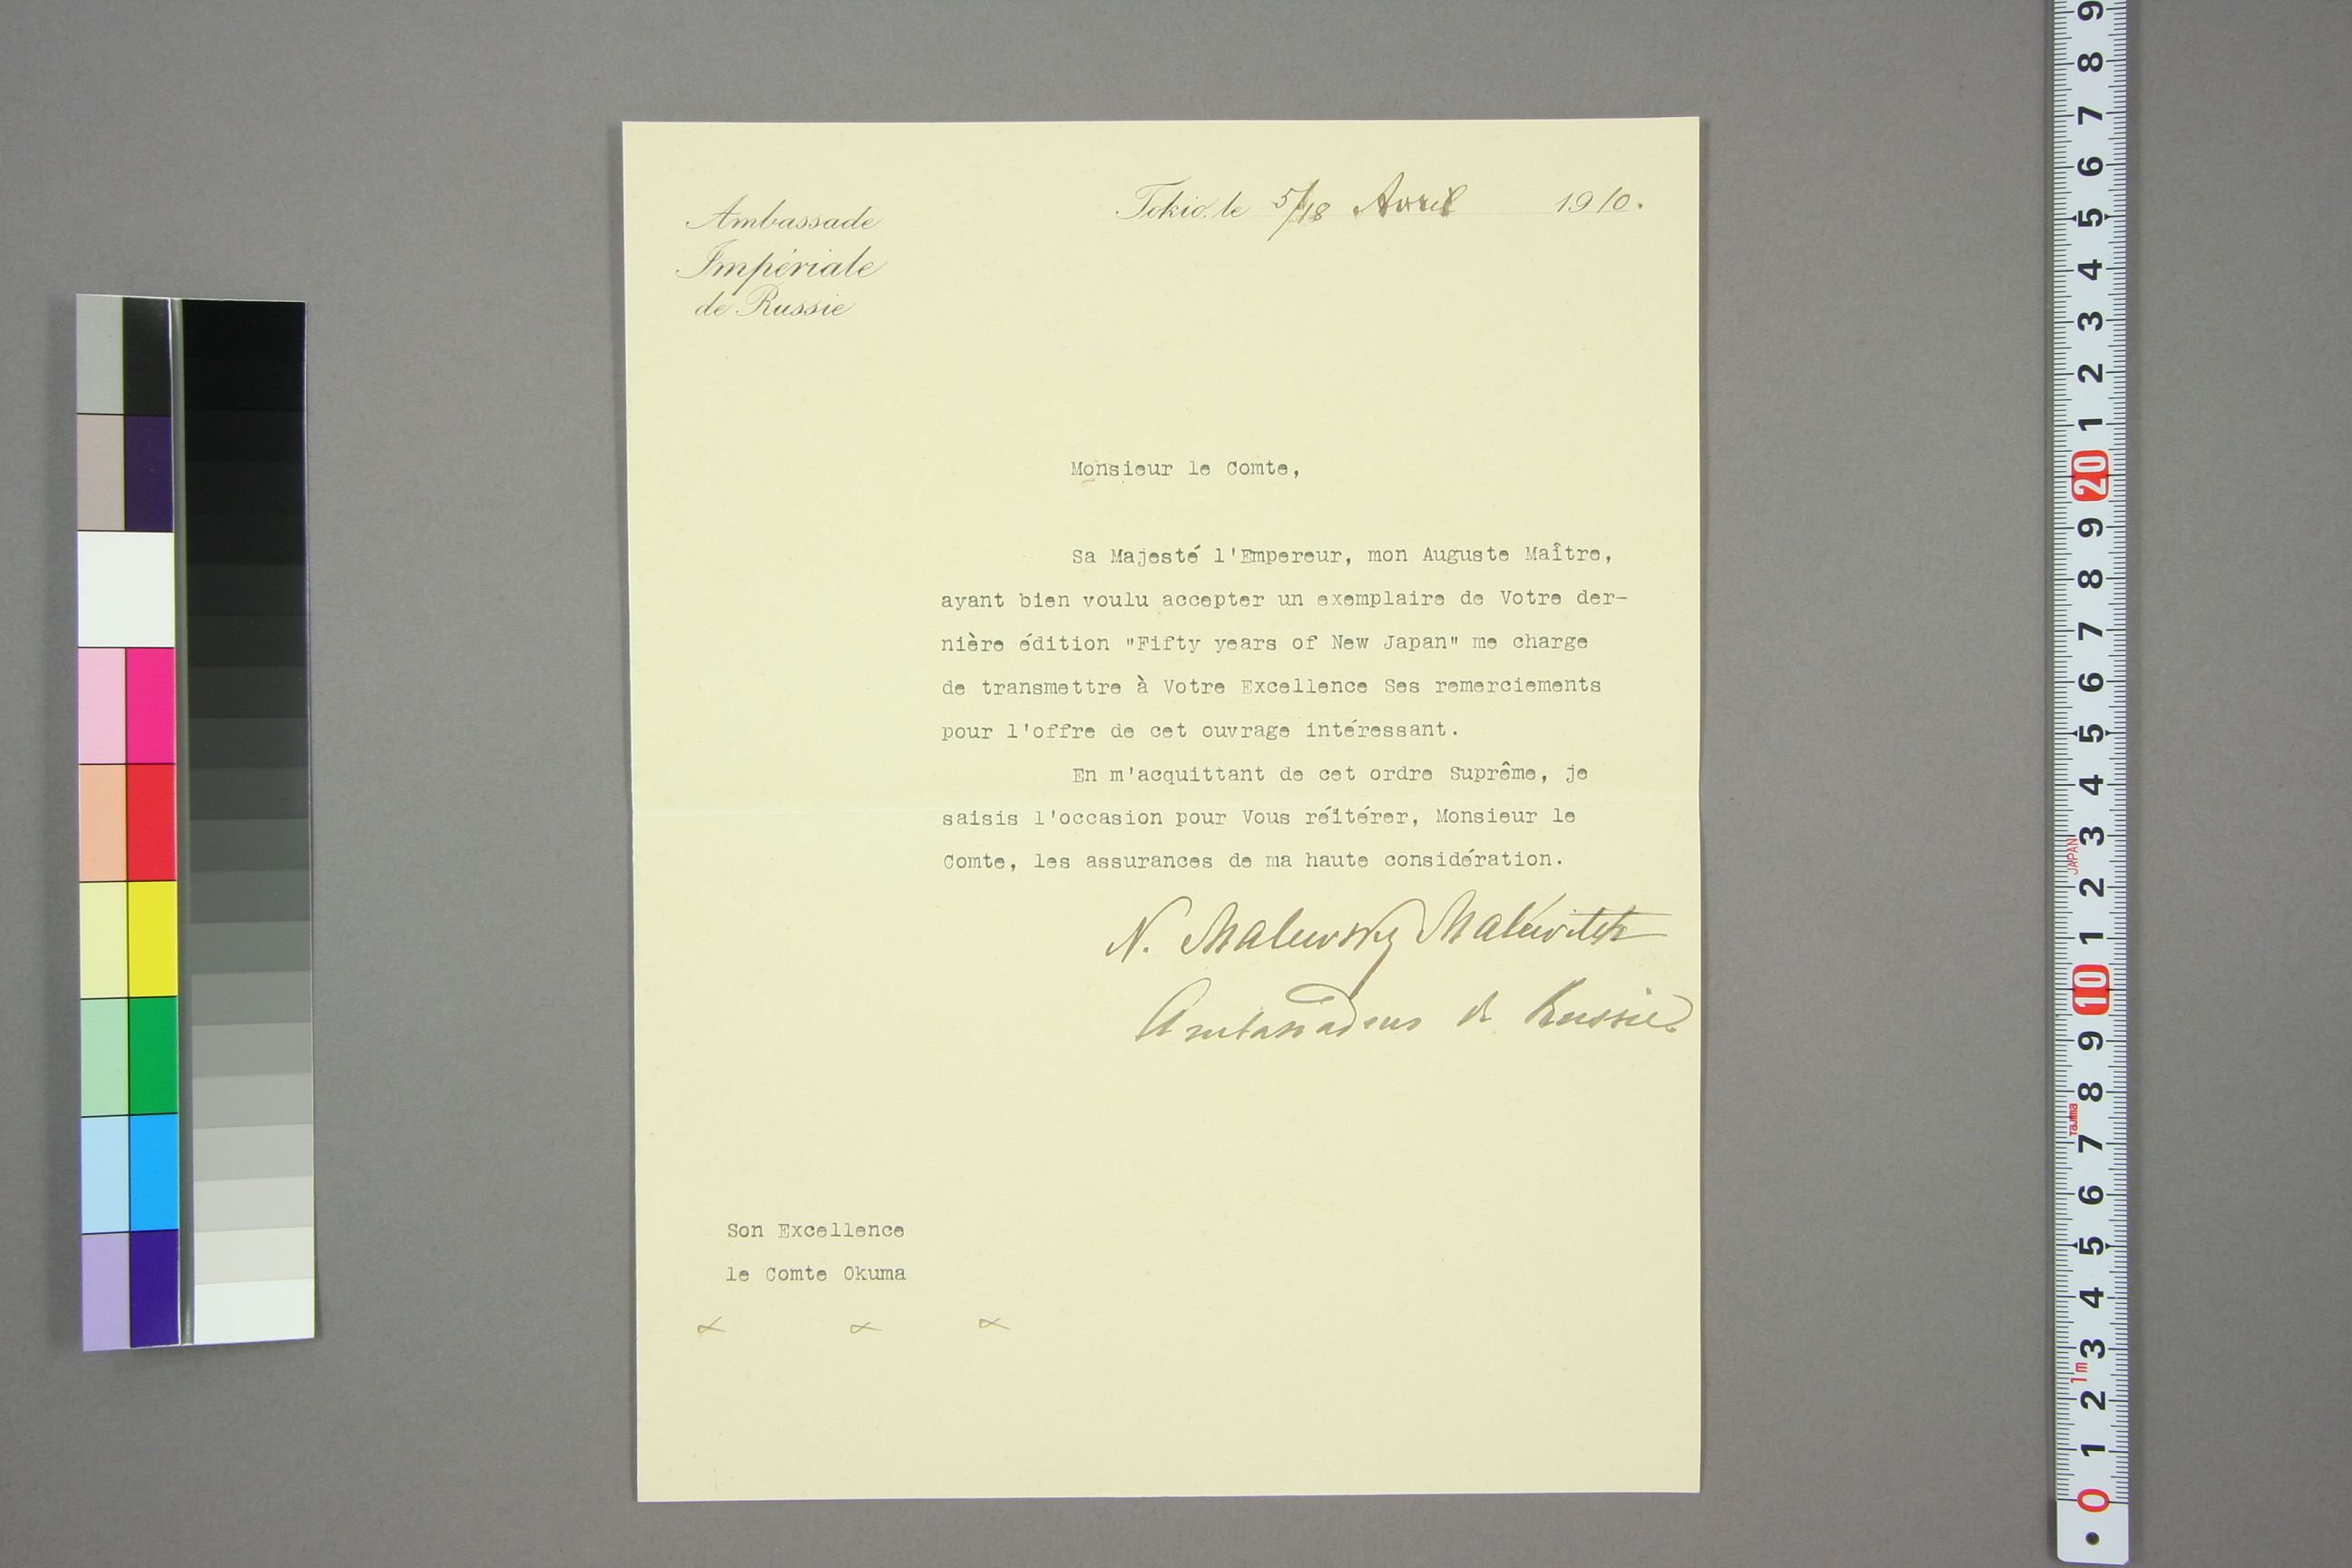 Ambassade
Impériale
de Russie
Tokio, le 5/18 Avril 1910.
Monsieur le Comte,
Sa Majesté l'Empereur, mon Auguste Maître,
ayant bien voulu accepter un exemplaire de Votre der-
nière édition "Fifty years of New Japan" me charge
de transmettre à Votre Excellence Ses remerciements
pour l'offre de cet ouvrage intéressant.
En m'acquittant de cet ordre Suprême, je
saisis l'occasion pour Vous réïtérer, Monsieur le
Comte, les assurances de ma haute considération.
N. Malewsky Malewitch
Ambassadeur de Russie
Son Excellence
le Comte Okuma
9
8
7
6
5
4
3
2
1
20
9
8
7
6
5
4
3
JAPAN
2
1
10
9
8
Tajima
7
6
5
4
3
1m
2
1
0